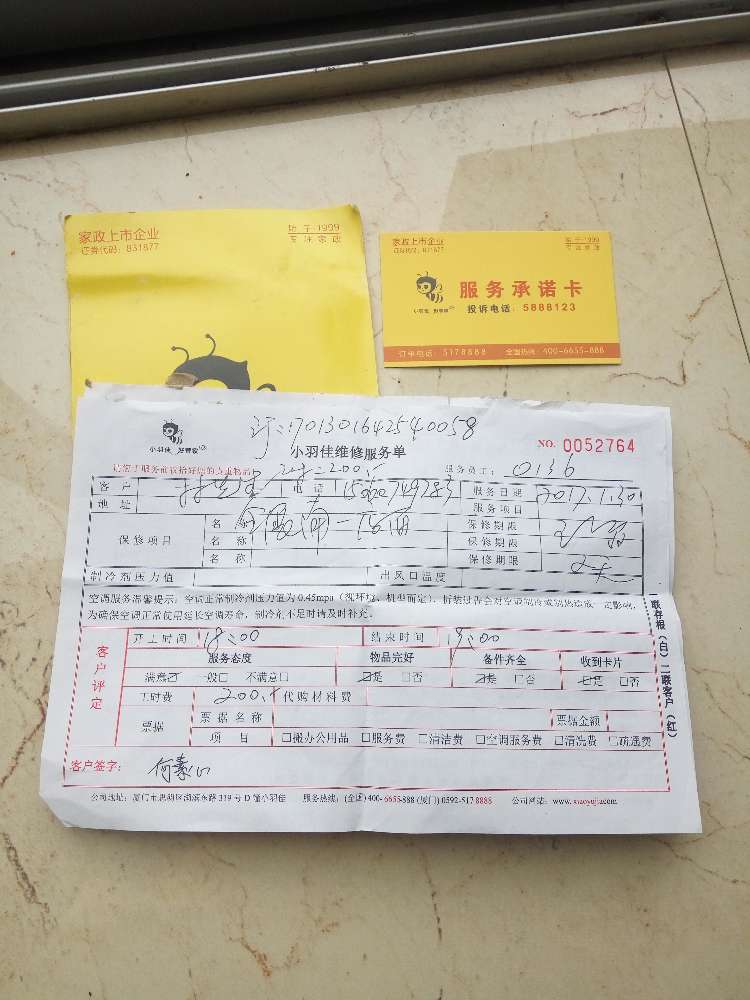 家政上市企业
证券代码：831877
始于1999
专注家政
家政上市企业
证券代码：831877
始于1999
专注家政
服务承诺卡
小羽佳 好管家
投诉电话：5888123
订单电话：5178888 全国热线：400-6655-888
小羽佳 好管家
1701301642540058
小羽佳维修服务单
NO. 0052764
服务员工：0136
客户 电话 服务日期 2017.1.30
地址 服务项目
保修项目
名称 保修期限
名称 保修期限
名称 保修期限
制冷剂压力值 出风口温度
空调服务温馨提示：空调正常制冷剂压力值为0.45mpa（视环境、机型而定），
为确保空调正常使用延长空调寿命，制冷剂不足时请及时补充。
一联存根（白）二联客户（红）
客户评定
开工时间 18:00 结束时间 19:00
服务态度 物品完好 备件齐全 收到卡片
满意☑ 一般□ 不满意□ ☑是 □否 ☑是 □否 ☑是 □否
工时费 200 代购材料费
票据 票据名称 票据金额
项目 □搬办公用品 □服务费 □清洁费 □空调服务费 □清洗费 □疏通费
客户签字：
公司地址：厦门市思明区湖滨东路319号D幢小羽佳 服务热线：(全国)400-6655-888 (厦门)0592-5178888 公司网站：www.xiaoyujia.com